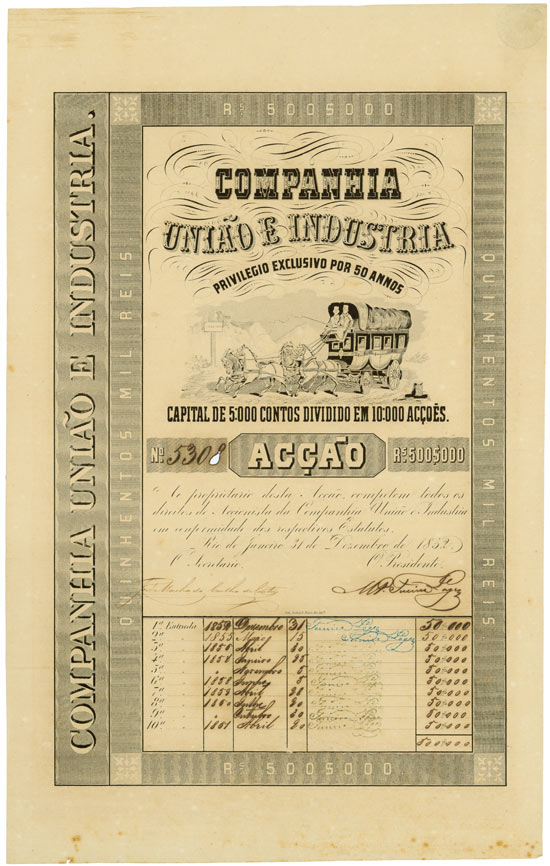 COMPANHIA UNIÃO E INDUSTRIA.
Rs 500$000
QUINHENTOS MIL REIS
QUINHENTOS MIL REIS
COMPANHIA
UNIÃO E INDUSTRIA
PRIVILEGIO EXCLUSIVO POR 50 ANNOS
CAPITAL DE 5:000 CONTOS DIVIDIDO EM 10:000 ACÇOẼS.
No 5308 ACÇÃO Rs 500$000
Ao proprietario desta Accão, competem todos os
direitos de Accionista da Companhia União e Industria
em conformidade dos respectivos Estatutos.
Rio de Janeiro 31 de Dezembro de 1852
O Secretario. O Presidente.
1a Entrada 1852 Dezembro 31 50.000
2a " 1855 Maio 15 50.000
3a " Abril 50.000
4a " Janeiro 50.000
5a " Novembro 5 50.000
6a " 5 50.000
7a " Abril 50.000
8a " 50.000
9a " Outubro 50.000
10a " 1861 Abril 50.000
500.000
Rs 500$000